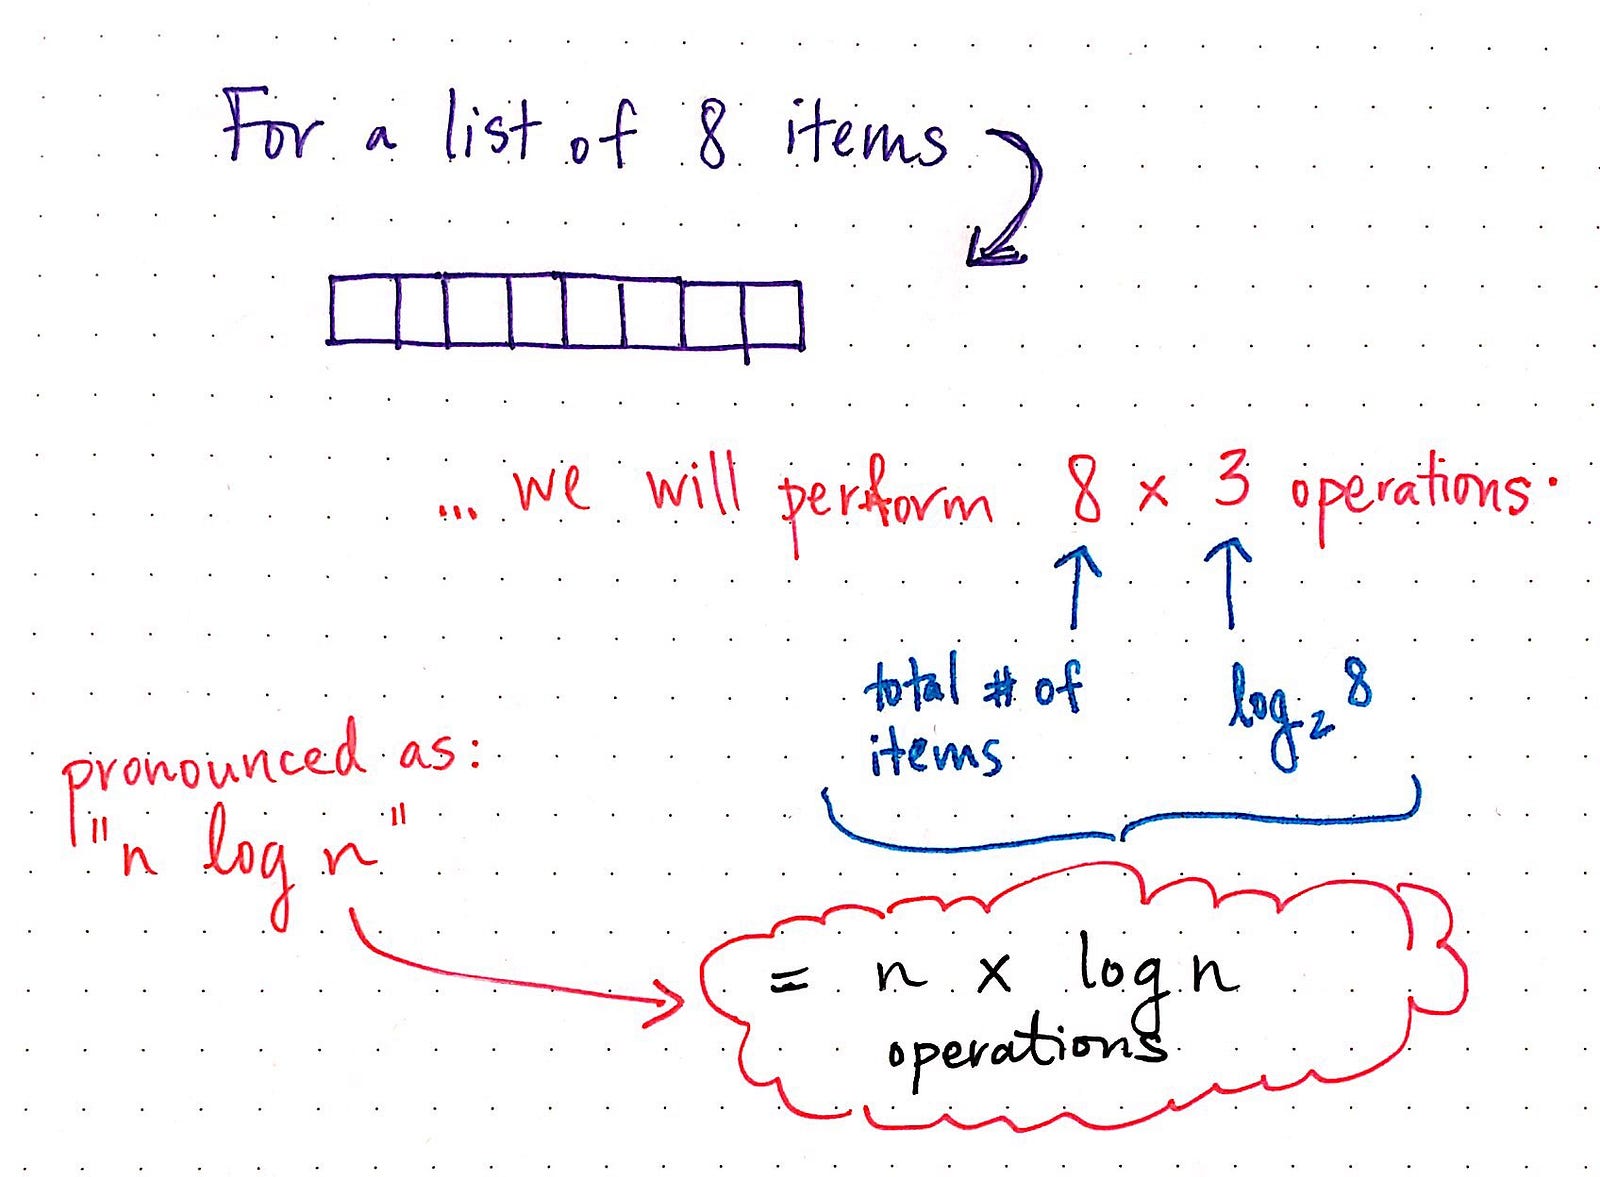 For a list of 8 items
... we will perform 8 x 3 operations.
total # of
items
log₂ 8
pronounced as:
"n log n"
= n x log n
operations